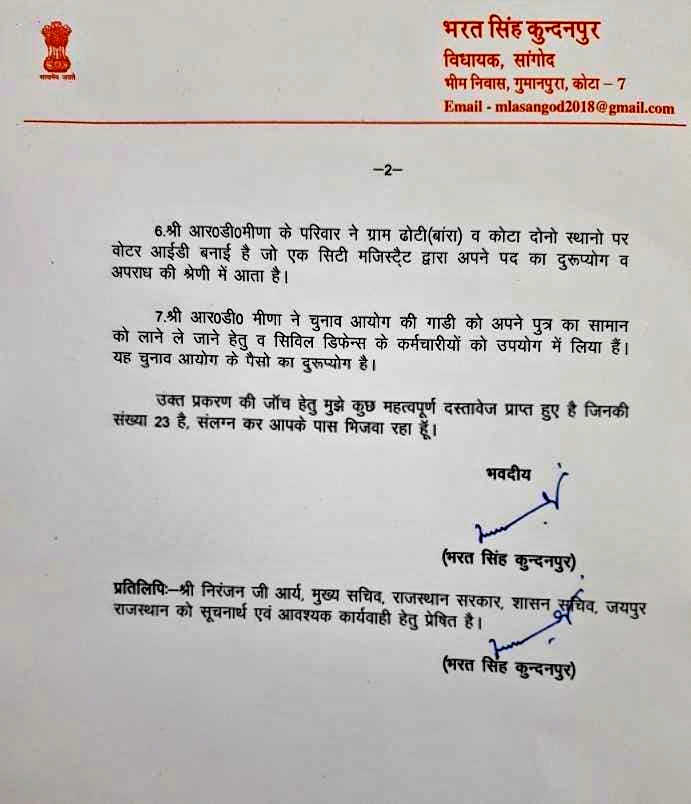 सत्यमेव जयते
भरत सिंह कुन्दनपुर
विधायक, सांगोद
भीम निवास, गुमानपुरा, कोटा – 7
Email - mlasangod2018@gmail.com
–2–
6.श्री आर0डी0मीणा के परिवार ने ग्राम ढोटी(बांरा) व कोटा दोनो स्थानो पर
वोटर आईडी बनाई है जो एक सिटी मजिस्ट्रैट द्वारा अपने पद का दुरूप्योग व
अपराध की श्रेणी में आता है।
7.श्री आर0डी0 मीणा ने चुनाव आयोग की गाडी को अपने पुत्र का सामान
को लाने ले जाने हेतु व सिविल डिफेन्स के कर्मचारीयों को उपयोग में लिया हैं।
यह चुनाव आयोग के पैसो का दुरूप्योग है।
उक्त प्रकरण की जॉच हेतु मुझे कुछ महत्वपूर्ण दस्तावेज प्राप्त हुए है जिनकी
संख्या 23 है, संलग्न कर आपके पास भिजवा रहा हूँ।
भवदीय
(भरत सिंह कुन्दनपुर)
प्रतिलिपिः–श्री निरंजन जी आर्य, मुख्य सचिव, राजस्थान सरकार, शासन सचिव, जयपुर
राजस्थान को सूचनार्थ एवं आवश्यक कार्यवाही हेतु प्रेषित है।
(भरत सिंह कुन्दनपुर)